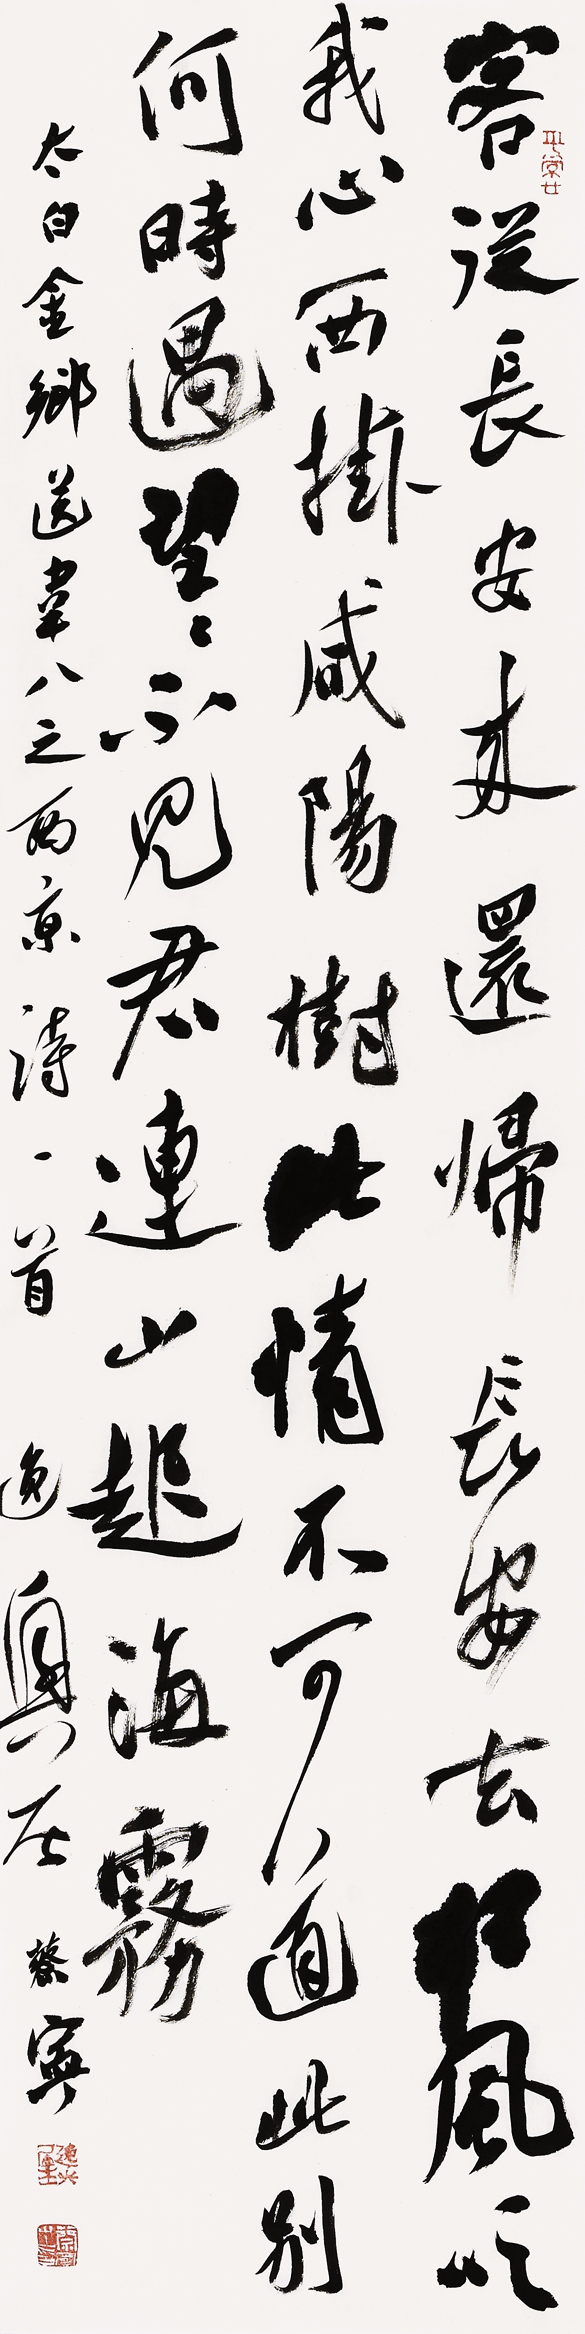 客從長安来還歸長安去狂風吹
我心西掛咸陽樹此情不可道此别
何時遇望〻不見君連山起海霧
太白金鄉送韋八之西京詩一首 逸興居 蔡寧